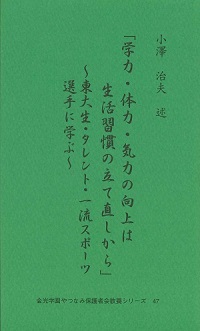 小澤 治夫 述
「学力・体力・気力の向上は
生活習慣の立て直しから」
～東大生・タレント・一流スポーツ
選手に学ぶ～
金光学園やつなみ保護者会教養シリーズ 47